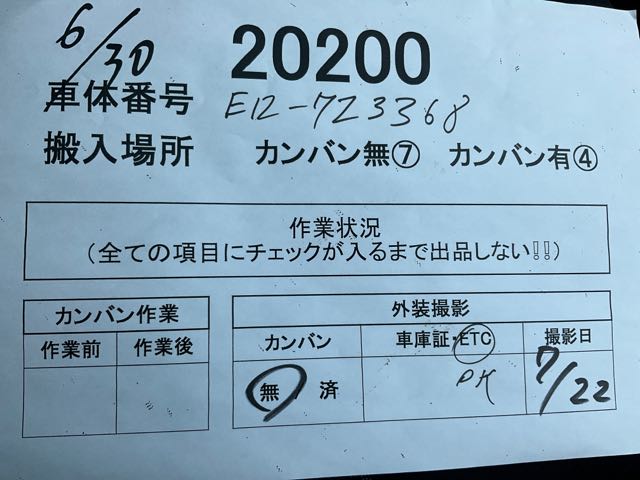 6/30
20200
車体番号 E12-723368
搬入場所 カンバン無⑦ カンバン有④
作業状況
(全ての項目にチェックが入るまで出品しない!!)
カンバン作業
作業前 作業後
外装撮影
カンバン 車庫証・ETC 撮影日
無 / 済 OK 7/22